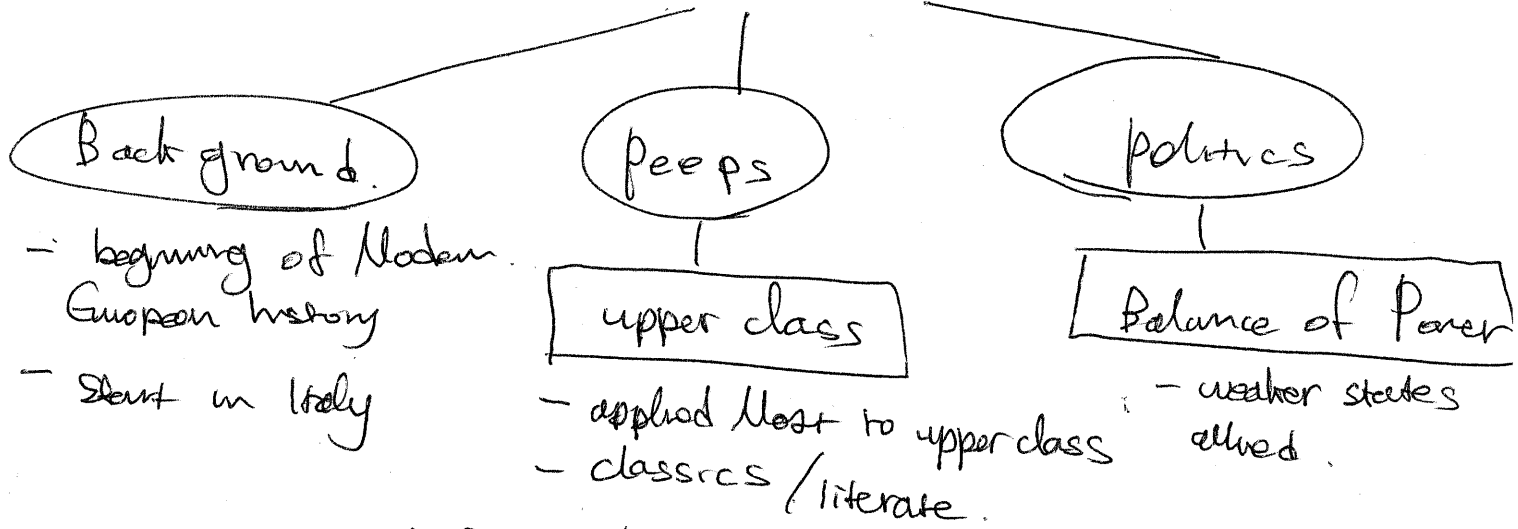 Background.
- beginning of Modern
European history
- Start in Italy
Peeps
upper class
- applied Most to upper class
- classics / literate.
politics
Balance of Power
- weaker states
allied.